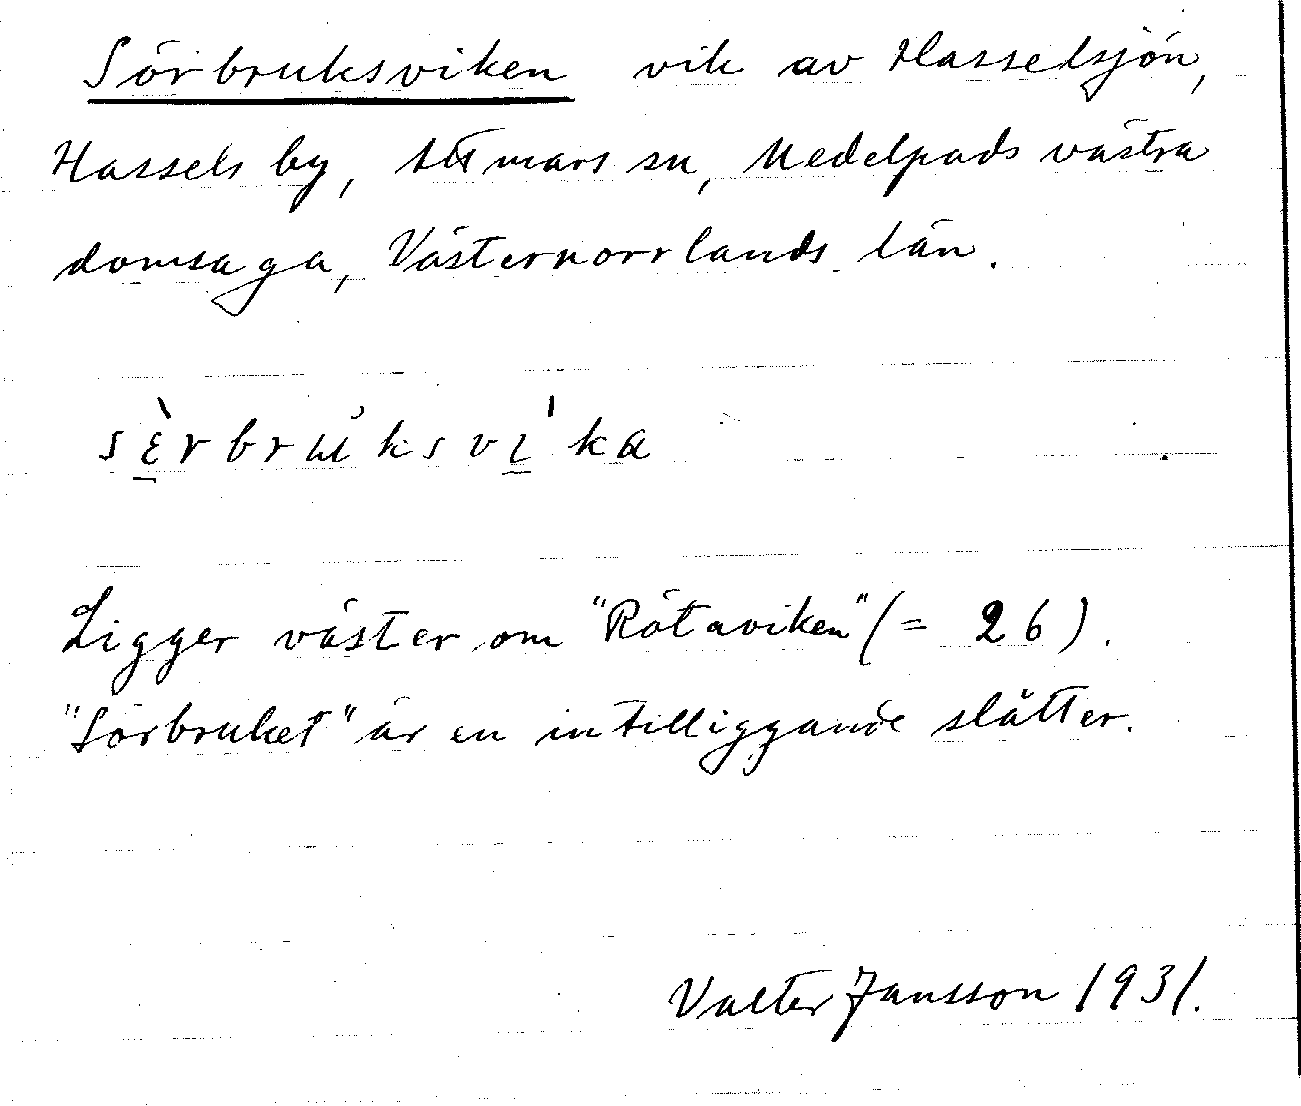 Sörbruksviken vik av Hasselsjön,
Hassels by, Attmars sn, Medelpads västra
domsaga, Västernorrlands län.
sɛ̀rbruksvi̠ka
Ligger väster om "Rötaviken" (= 26).
"Sörbruket" är en intilliggande slåtter.
Valter Jansson 1931.